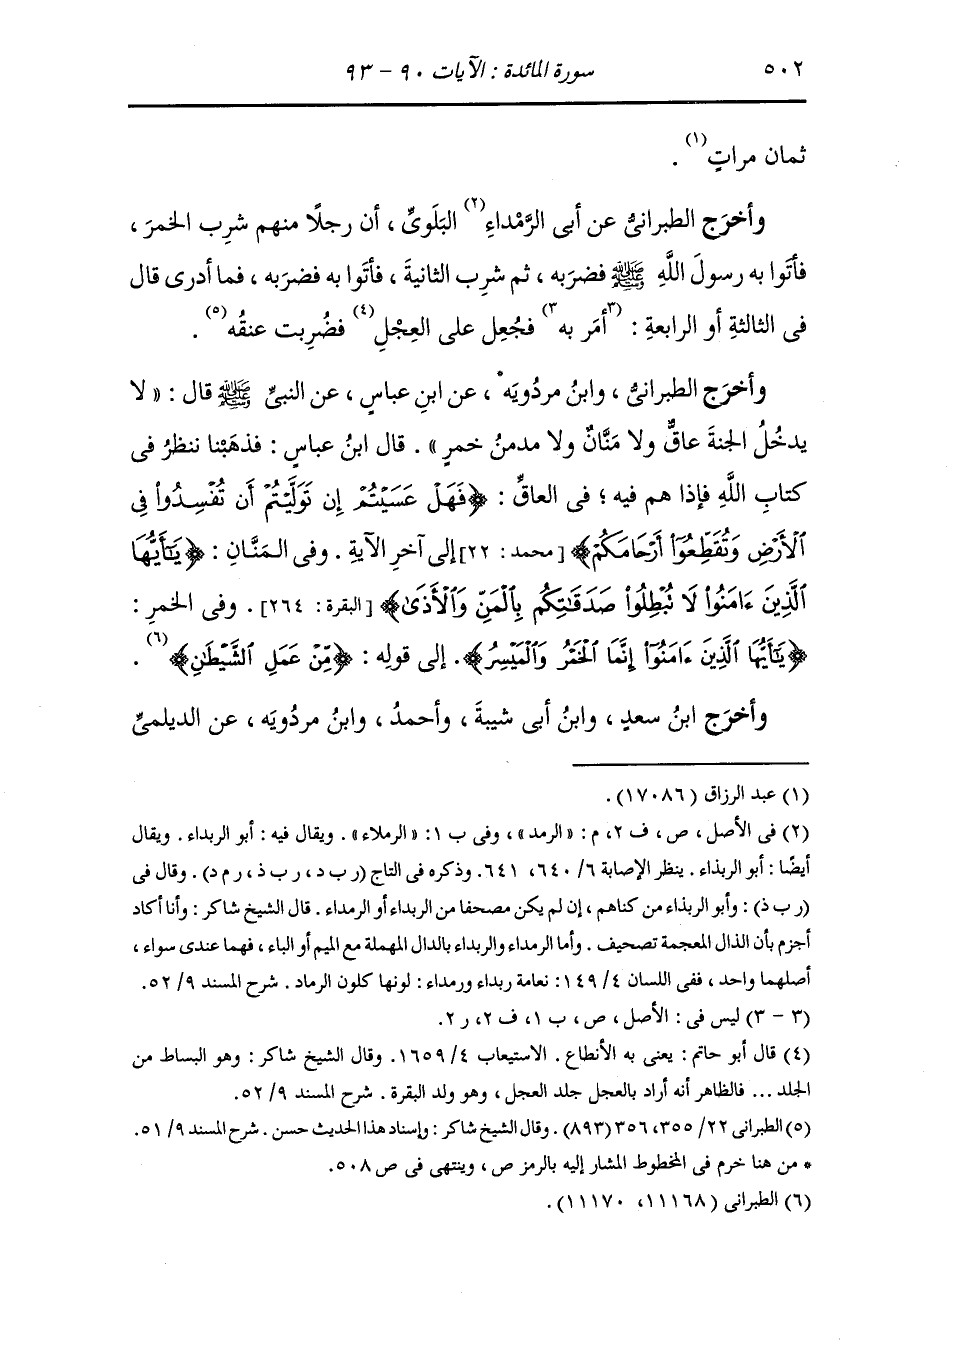 ٥٠٢ سورة المائدة : الآيات ٩٠ - ٩٣
ثمان مراتٍ(١) .
وأخرَج الطبرانىُّ عن أبى الرَّمْداءِ(٢) البَلَوىِّ ، أن رجلًا منهم شرِب الخمرَ ،
فأتَوا به رسولَ اللَّهِ ﷺ فضرَبه ، ثم شرِب الثانيةَ ، فأتَوا به فضرَبه ، فما أدرى قال
فى الثالثةِ أو الرابعةِ : (٣أمَر به٣) فجُعِل على العِجْلِ(٤) فضُرِبت عنقُه(٥) .
وأخرَج الطبرانىُّ ، وابنُ مردُويَه* ، عن ابنِ عباسٍ ، عن النبىِّ ﷺ قال : « لا
يدخُلُ الجنةَ عاقٌّ ولا مَنَّانٌ ولا مدمنُ خمرٍ » . قال ابنُ عباسٍ : فذهَبْنا ننظرُ فى
كتابِ اللَّهِ فإذا هم فيه ؛ فى العاقِّ : ﴿فَهَلْ عَسَيْتُمْ إِن تَوَلَّيْتُمْ أَن تُفْسِدُوا۟ فِى
ٱلْأَرْضِ وَتُقَطِّعُوٓا۟ أَرْحَامَكُمْ﴾ [محمد : ٢٢] إلى آخرِ الآيةِ . وفى المَنَّانِ : ﴿يَـٰٓأَيُّهَا
ٱلَّذِينَ ءَامَنُوا۟ لَا تُبْطِلُوا۟ صَدَقَـٰتِكُم بِٱلْمَنِّ وَٱلْأَذَىٰ﴾ [البقرة : ٢٦٤] . وفى الخمرِ :
﴿يَـٰٓأَيُّهَا ٱلَّذِينَ ءَامَنُوٓا۟ إِنَّمَا ٱلْخَمْرُ وَٱلْمَيْسِرُ﴾ . إلى قولِه : ﴿مِّنْ عَمَلِ ٱلشَّيْطَـٰنِ﴾(٦) .
وأخرَج ابنُ سعدٍ ، وابنُ أبى شيبةَ ، وأحمدُ ، وابنُ مردُويَه ، عن الديلمىِّ
(١) عبد الرزاق (١٧٠٨٦) .
(٢) فى الأصل ، ص ، ف ٢، م : «الرمد» ، وفى ب ١: «الرملاء» . ويقال فيه : أبو الربداء . ويقال
أيضًا : أبو الربذاء . ينظر الإصابة ٦/ ٦٤٠، ٦٤١. وذكره فى التاج (ر ب د ، ر ب ذ ، ر م د) . وقال فى
(ر ب ذ) : وأبو الربذاء من كناهم ، إن لم يكن مصحفا من الربداء أو الرمداء . قال الشيخ شاكر : وأنا أكاد
أجزم بأن الذال المعجمة تصحيف . وأما الرمداء والربداء بالدال المهملة مع الميم أو الباء ، فهما عندى سواء ،
أصلهما واحد ، ففى اللسان ٤/ ١٤٩: نعامة ربداء ورمداء : لونها كلون الرماد . شرح المسند ٩/ ٥٢.
(٣ - ٣) ليس فى : الأصل ، ص ، ب ١، ف ٢، ر ٢.
(٤) قال أبو حاتم : يعنى به الأنطاع . الاستيعاب ٤/ ١٦٥٩. وقال الشيخ شاكر : وهو البساط من
الجلد ... فالظاهر أنه أراد بالعجل جلد العجل ، وهو ولد البقرة . شرح المسند ٩/ ٥٢.
(٥) الطبرانى ٢٢/ ٣٥٥، ٣٥٦ (٨٩٣) . وقال الشيخ شاكر : وإسناد هذا الحديث حسن . شرح المسند ٩/ ٥١.
* من هنا خرم فى المخطوط المشار إليه بالرمز ص ، وينتهى فى ص ٥٠٨.
(٦) الطبرانى (١١١٦٨، ١١١٧٠) .